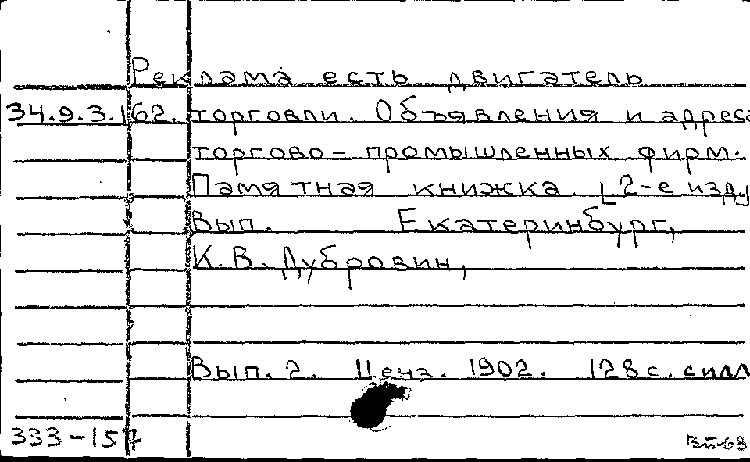 Реклама есть двигатель
34.9.3.162. торговли. Объявления и адреса
торгово-промышленных фирм.
Памятная книжка. [2-е изд.]
Вып. Екатеринбург,
К.В. Дубровин,
Вып. 2. Ценз. 1902. 128 с. с илл
333-157